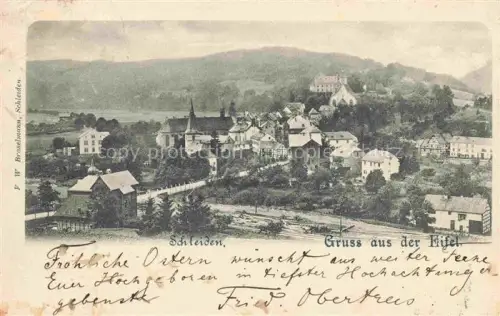 F W Brüselmann, Schleiden.
Schleiden,
Gruss aus der Eifel.
Fröhliche Ostern wünscht aus weiter Ferne
Euer Hochgeboren in tiefster Hochachtung
ergebenste Fried